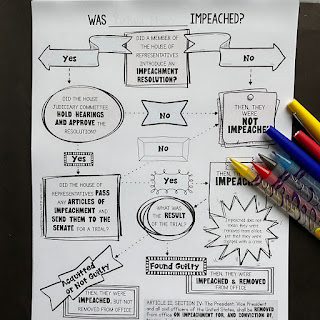 WAS IMPEACHED?
DID A MEMBER OF
THE HOUSE OF
REPRESENTATIVES
INTRODUCE AN
IMPEACHMENT
RESOLUTION?
Yes
No
DID THE HOUSE
JUDICIARY COMMITTEE
HOLD HEARINGS
AND APPROVE THE
RESOLUTION?
No
THEN, THEY
WERE
NOT
IMPEACHED
Yes
No
DID THE HOUSE OF
REPRESENTATIVES PASS
ANY ARTICLES OF
IMPEACHMENT AND
SEND THEM TO THE
SENATE FOR A TRIAL?
Yes
THEN, THEY
WERE
IMPEACHED
WHAT WAS
THE RESULT
OF THE TRIAL?
Impeached does not
mean they were
removed from office
just that they were
charged with a crime
Acquitted
or Not Guilty
Found Guilty
THEN, THEY WERE
IMPEACHED & REMOVED
FROM OFFICE
THEN, THEY WERE
IMPEACHED, BUT NOT
REMOVED FROM OFFICE
ARTICLE II, SECTION IV: The President, Vice President
and all civil officers of the United States, shall be REMOVED
from office ON IMPEACHMENT FOR, AND CONVICTION OF,